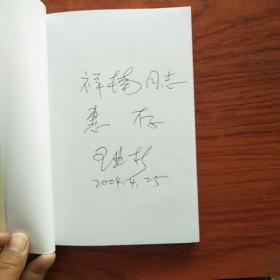 祥楠同志
惠存
2004.4.25